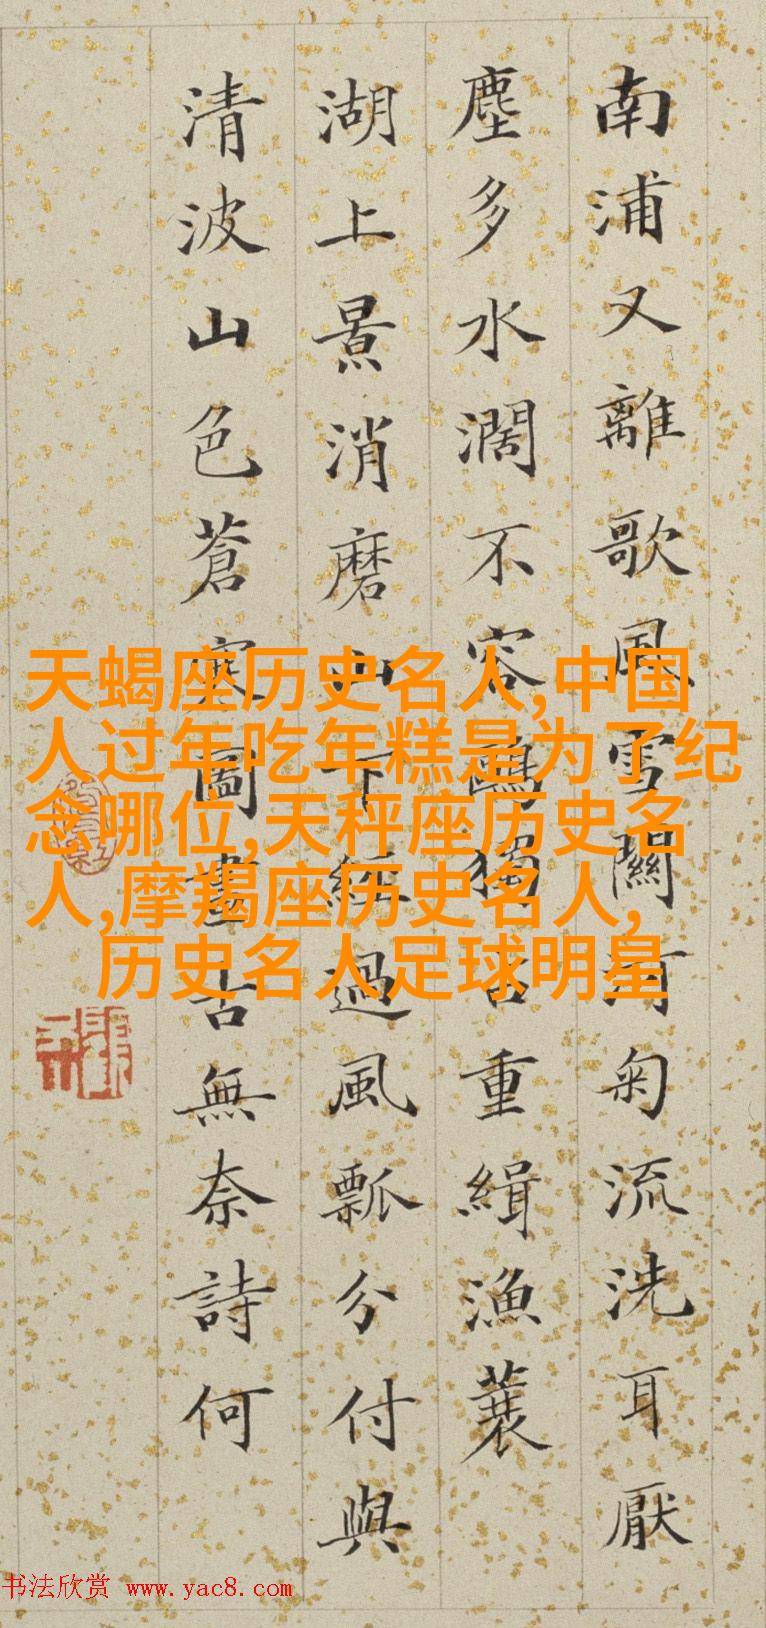 南浦又離歌風雪關河匊流洗耳厭
塵多水濶不容鷗獨占重緝漁蓑
湖上景消磨山下經過風瓢分付與
清波山色蒼寒圖畫古無奈詩何
天蝎座历史名人,中国
人过年吃年糕是为了纪
念哪位,天秤座历史名
人,摩羯座历史名人,
历史名人足球明星
书法欣赏 www.yac8.com